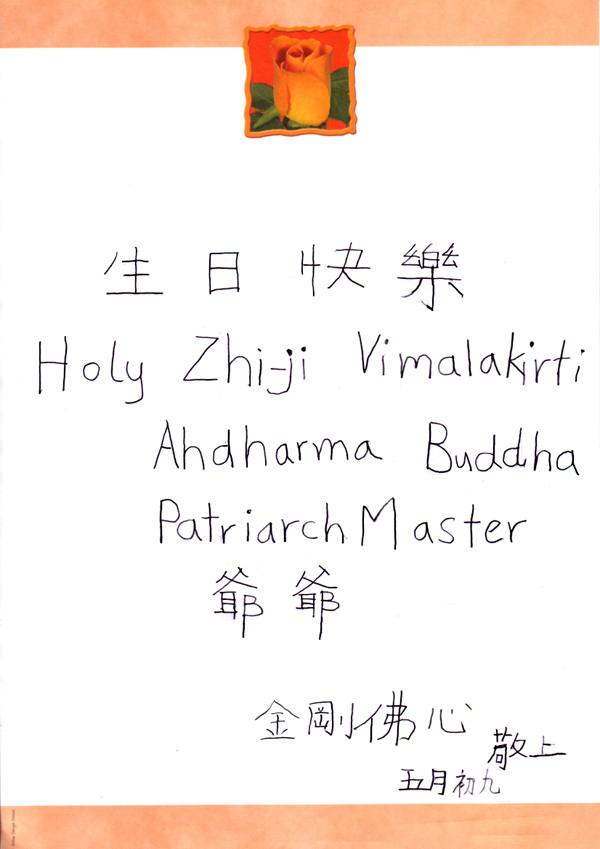 生日快樂
Holy Zhi-ji Vimalakirti
Ahdharma Buddha
Patriarch Master
爺爺
金剛佛心
敬上
五月初九